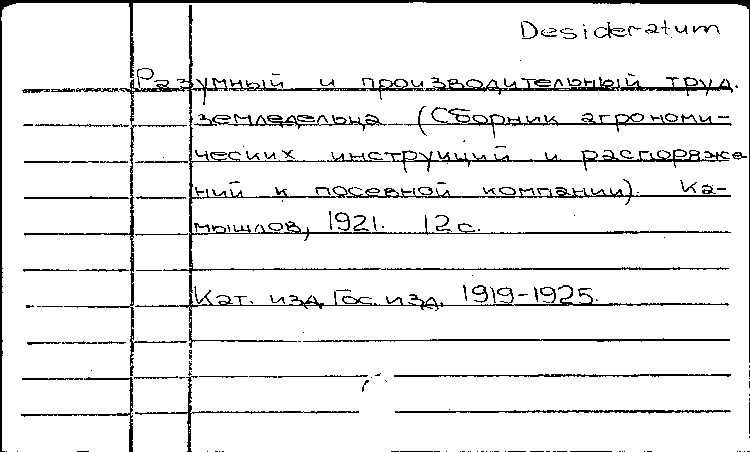 Desideratum
Разумный и производительный труд.
земледельца (Сборник агрономи-
ческих инструкций и распоряже
ний к посевной компании). Ка-
мышлов, 1921. 12 с.
Кат. изд. Гос. изд. 1919-1925.